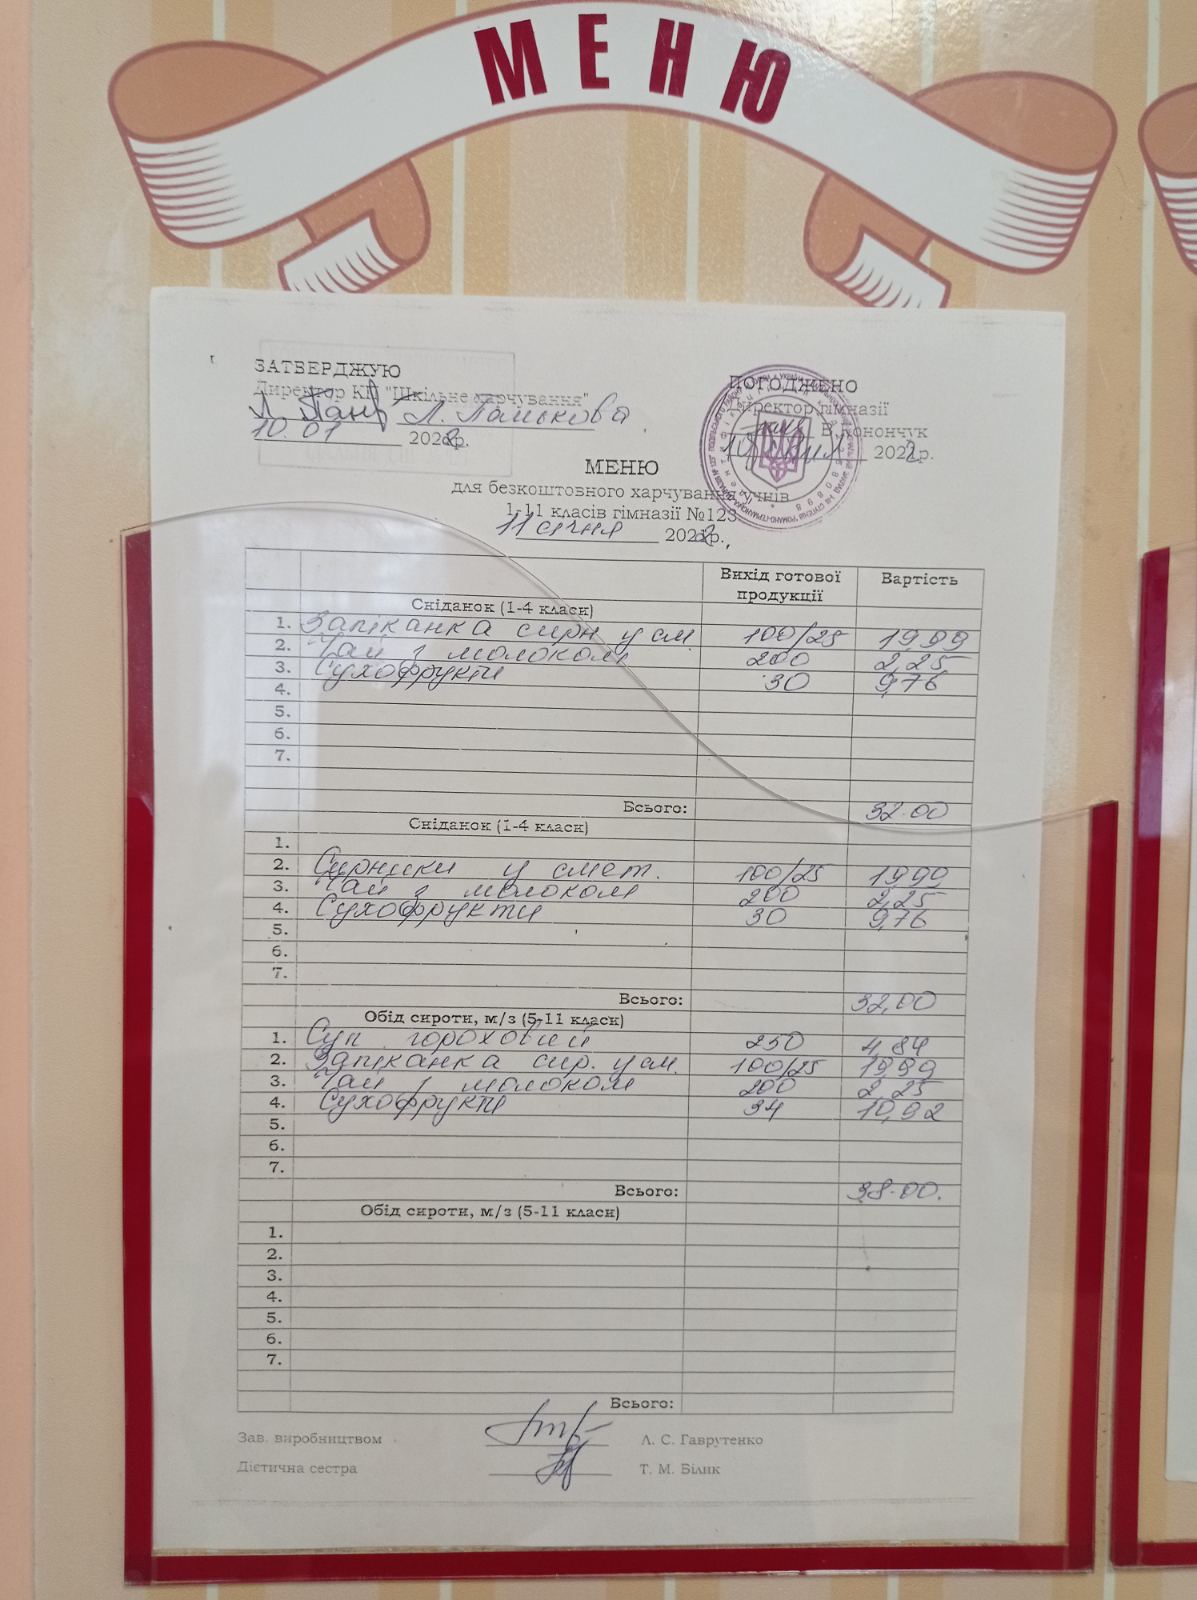 МЕНЮ
ЗАТВЕРДЖУЮ
Директор КП "Шкільне харчування"
10.01 2022р.
ПОГОДЖЕНО
Директор гімназії
В. Конончук
2022р.
МЕНЮ
для безкоштовного харчування учнів
1-11 класів гімназії №123
11 січня 2022р.
Вихід готової продукції Вартість
Сніданок (1-4 класи)
1. Запіканка сирн у см. 100/25 19,99
2. Чай з молоком 200 2,25
3. Сухофрукти 30 9,76
4.
5.
6.
7.
Всього: 32.00
Сніданок (1-4 класи)
1.
2. Сирники у смет. 100/25 19,99
3. Чай з молоком 200 2,25
4. Сухофрукти 30 9,76
5.
6.
7.
Всього: 32,00
Обід сироти, м/з (5-11 класи)
1. Суп гороховий 250 4,84
2. Запіканка сир. у см. 100/25 19,99
3. Чай з молоком 200 2,25
4. Сухофрукти 34 10,92
5.
6.
7.
Всього: 38.00.
Обід сироти, м/з (5-11 класи)
1.
2.
3.
4.
5.
6.
7.
Всього:
Зав. виробництвом Л. С. Гаврутенко
Дієтична сестра Т. М. Білик